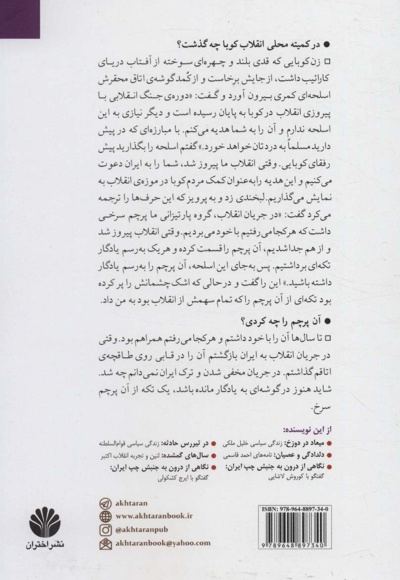 ● در کمیته محلی انقلاب کوبا چه گذشت؟
□ زن کوبایی که قدی بلند و چهره‌ای سوخته از آفتاب دریای
کارائیب داشت، از جایش برخاست و از کُمد گوشه‌ی اتاق محقرش
اسلحه‌ای کمری بیرون آورد و گفت: «دوره‌ی جنگ انقلابی با
پیروزی انقلاب در کوبا به پایان رسیده است و دیگر نیازی به این
اسلحه ندارم و آن را به شما هدیه می‌کنم. با مبارزه‌ای که در پیش
دارید مسلماً به دردتان خواهد خورد.» گفتم اسلحه را بگذارید پیش
رفقای کوبایی. وقتی انقلاب ما پیروز شد، شما را به ایران دعوت
می‌کنیم و این هدیه را به‌عنوان کمک مردم کوبا در موزه‌ی انقلاب به
نمایش می‌گذاریم. لبخندی زد و به پرویز که این حرف‌ها را ترجمه
می‌کرد گفت: «در جریان انقلاب، گروه پارتیزانی ما پرچم سرخی
داشت که هر کجا می‌رفتیم با خود می‌بردیم. وقتی انقلاب پیروز شد
و از هم جدا شدیم، آن پرچم را قسمت کرده و هر یک به رسم یادگار
تکه‌ای برداشتیم. پس به‌جای این اسلحه، آن پرچم را به‌رسم یادگار
داشته باشید.» این را گفت و در حالی که اشک چشمانش را پر کرده
بود تکه‌ای از آن پرچم را که تمام سهمش از انقلاب بود به من داد.
● آن پرچم را چه کردی؟
□ تا سال‌ها آن را با خود داشتم و هر کجا می‌رفتم همراهم بود. وقتی
در جریان انقلاب به ایران بازگشتم آن را در قابی روی طاقچه‌ی
اتاقم گذاشتم. در جریان مخفی شدن و ترک ایران نمی‌دانم چه شد.
شاید هنوز در گوشه‌ای به یادگار مانده باشد، یک تکه از آن پرچم
سرخ.
از این نویسنده:
● میعاد در دوزخ: زندگی سیاسی خلیل ملکی
● دلدادگی و عصیان: نامه‌های احمد قاسمی
● نگاهی از درون به جنبش چپ ایران:
گفتگو با کوروش لاشایی
● در تیررس حادثه: زندگی سیاسی قوام‌السلطنه
● سال‌های گمشده: لنین و تجربه انقلاب اکتبر
● نگاهی از درون به جنبش چپ ایران:
گفتگو با ایرج کشکولی
نشر اختران
akhtaran
www.akhtaranbook.ir
@akhtaranpub
akhtaranbook@yahoo.com
ISBN: 978-964-8897-34-0
9 789648 897340